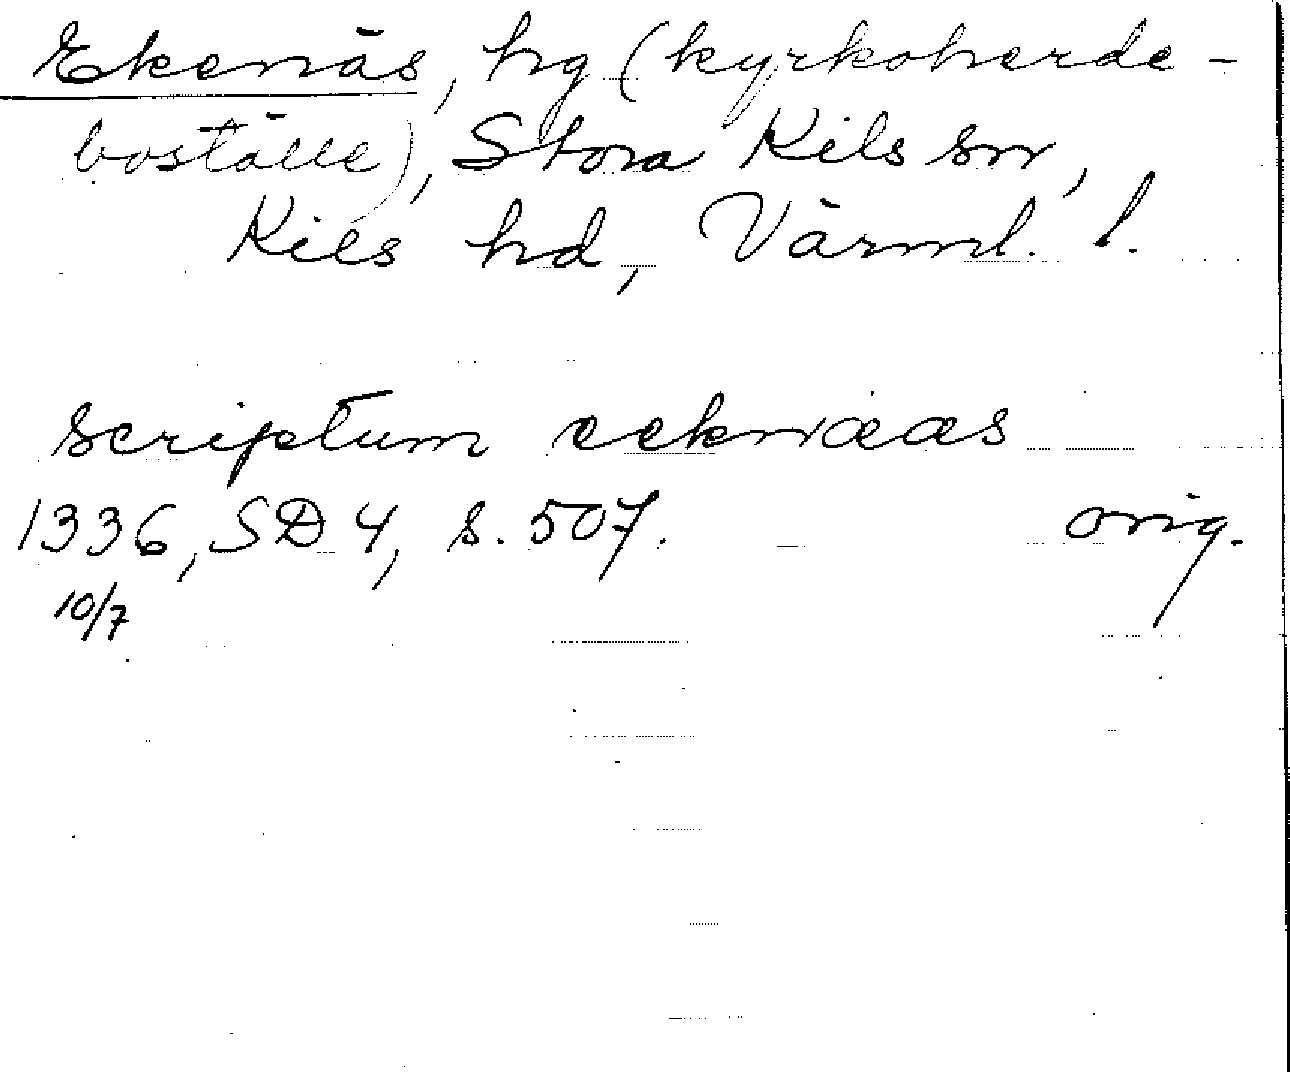 Ekenäs, hg (kyrkoherde-
boställe), Stora Kils sn,
Kils hd, Värml. l.
scriptum eeknæs
1336, SD 4, s. 507. orig.
10/7